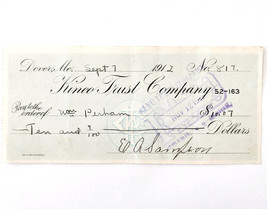 Dover, Me. Sept 7 1912 No. 817
Kineo Trust Company 52-163
Pay to the
order of Wm Perham $10 07
Ten and 7/100 Dollars
E A Sampson